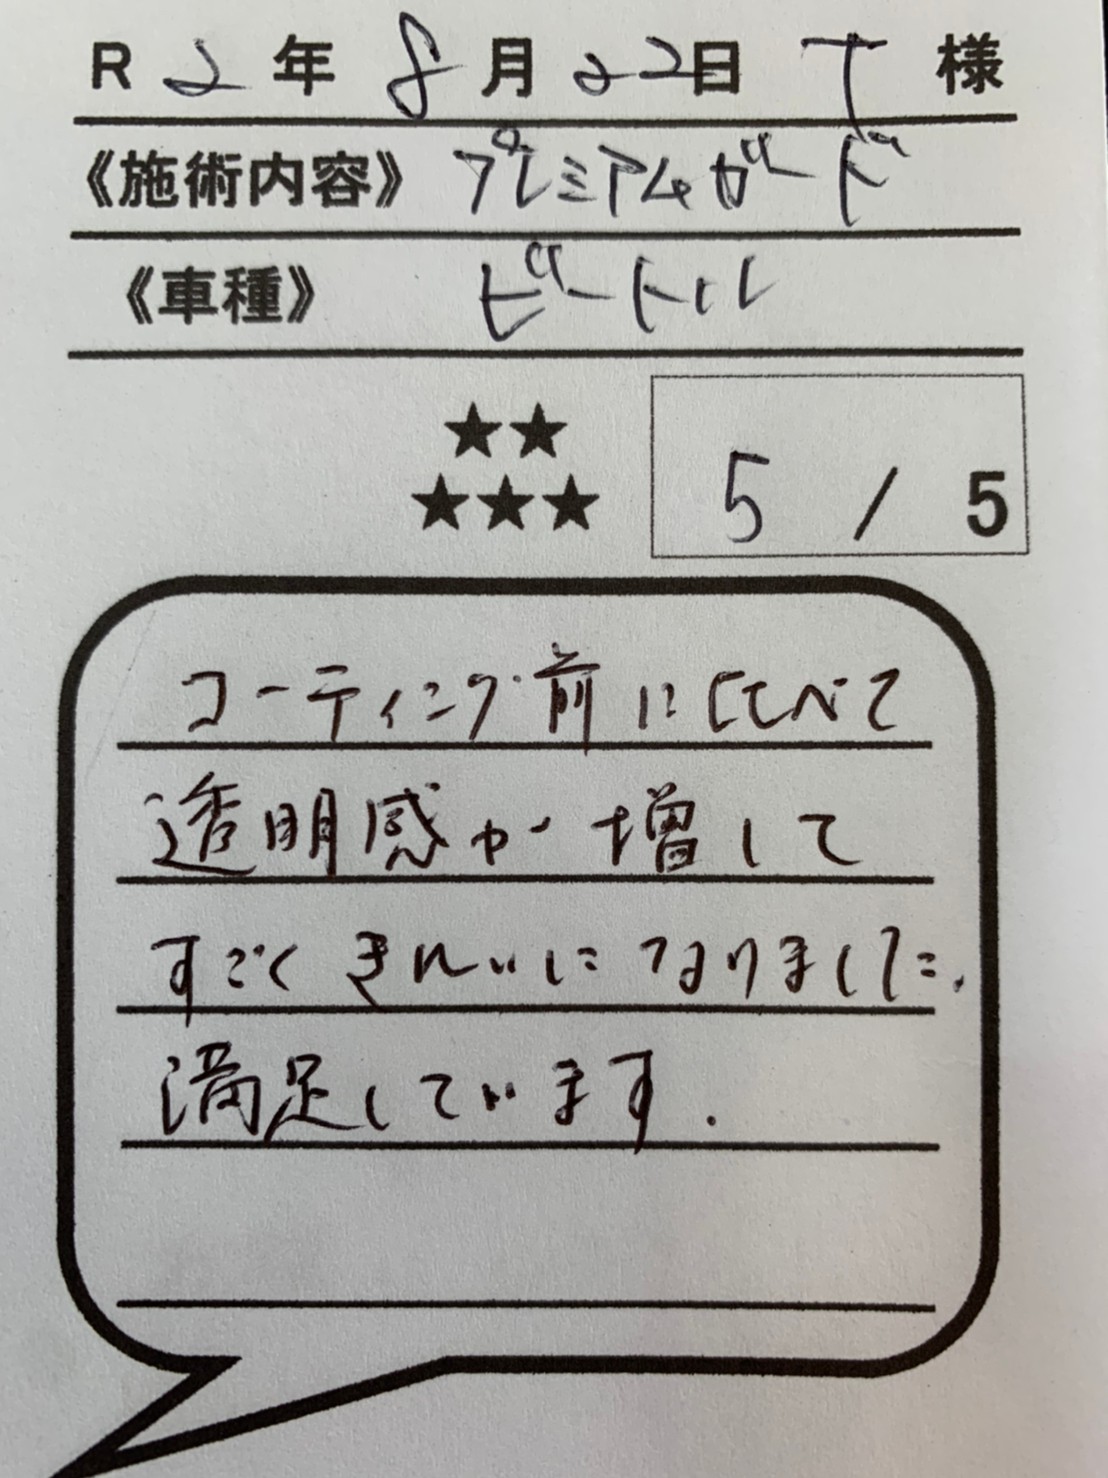 R 2年 8月 22日 T 様
《施術内容》 プレミアムガード
《車種》 ビートル
★★
★★★
5 / 5
コーティング前に比べて
透明感が増して
すごくきれいになりました.
満足しています.